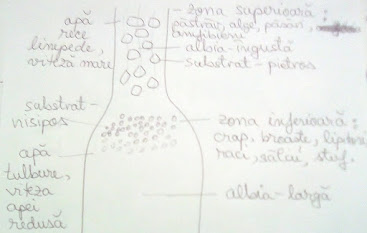 apă
rece
limpede,
viteză mare
- zona superioară :
păstrăv, alge, păsări,
amfibieni
albia - îngustă
substrat - pietros
substrat -
nisipos
apă
tulbure,
viteza
apei
redusă
zona inferioară :
crap, broaște, lipitori
raci, sălcii, stuf.
albia - largă